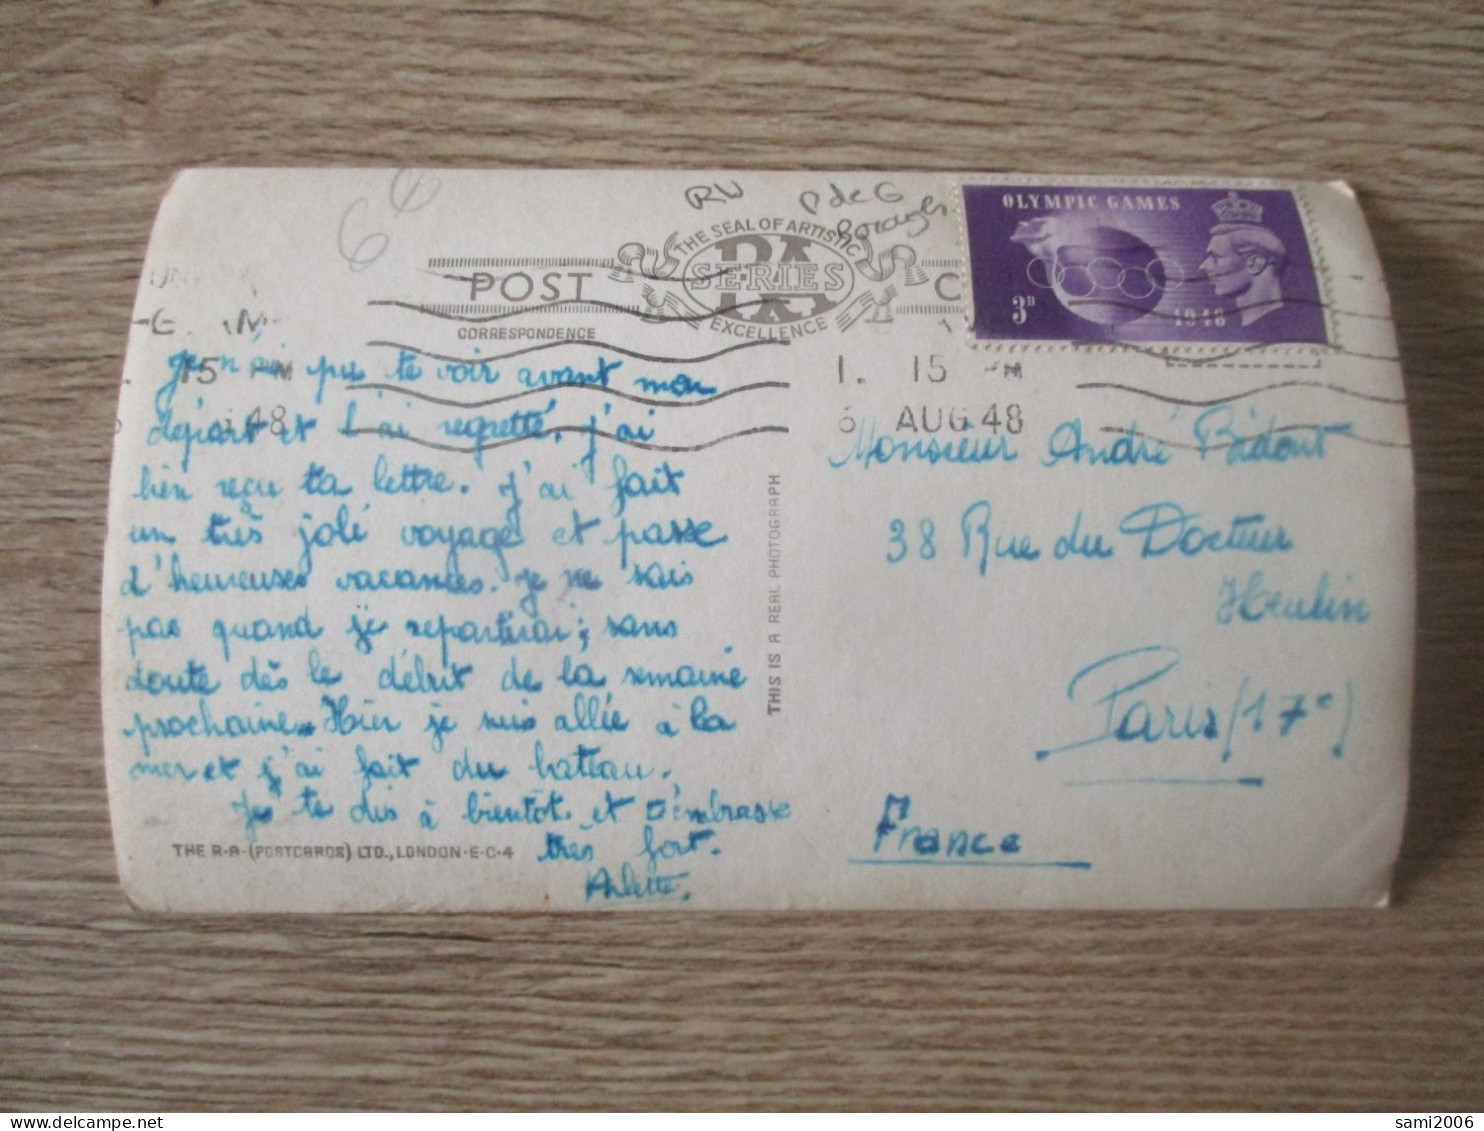 RU
P de G
6
THE SEAL OF ARTISTIC
RA
SERIES
EXCELLENCE
POST C
CORRESPONDENCE
OLYMPIC GAMES
3D
1948
15 PM
48
1. 15 PM
6 AUG 48
Je n'ai pu te voir avant mon
départ et l'ai regretté. J'ai
bien reçu ta lettre. J'ai fait
un très joli voyage et passe
d'heureuses vacances. Je ne sais
pas quand je repartirai; sans
doute dès le début de la semaine
prochaine. Hier je suis allée à la
mer et j'ai fait du bateau.
Je te dis à bientôt et t'embrasse
très fort.
Arlette.
THE R·A·(POSTCARDS) LTD., LONDON·E·C·4
THIS IS A REAL PHOTOGRAPH
Monsieur André Bidout
38 Rue du Docteur
Heulin
Paris (17e)
France
sami2006